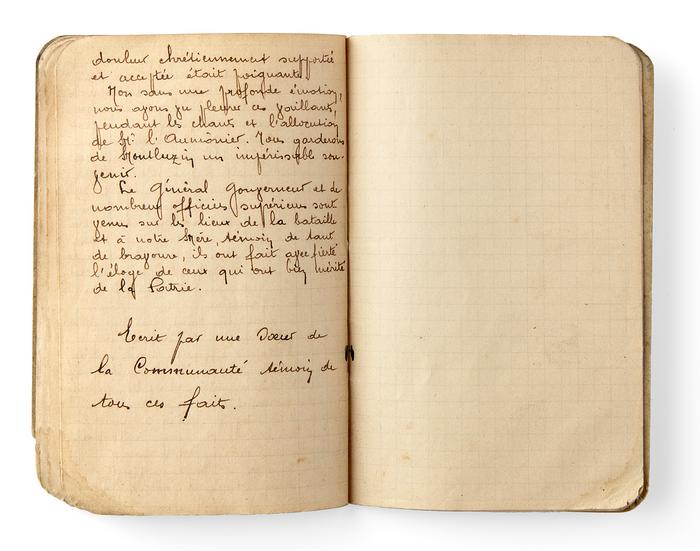 douleur chrétiennement supportée
et acceptée était poignante.
Non sans une profonde émotion,
nous avons vu pleurer ces vaillants,
pendant les chants et l'allocution
de Mr l'Aumônier. Nous garderons
de Montluzin un impérissable sou-
venir.
Le Général Gouverneur et de
nombreux officiers supérieurs sont
venus sur les lieux de la bataille
et à notre Mère, témoin de tant
de bravoure, ils ont fait avec fierté
l'éloge de ceux qui ont bien mérité
de la Patrie.
Ecrit par une Soeur de
la Communauté témoin de
tous ces faits.